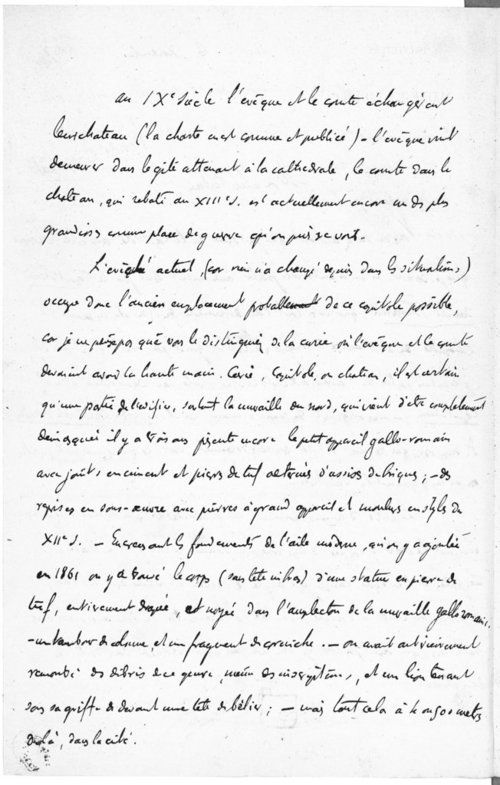 au IXe siècle l'évêque et le comte échangèrent
leur chateau (la charte en est connue et publiée) - l'évêque vint
demeurer dans le gîte attenant à la cathédrale, le comte dans le
chateau, qui rebati au XIIIe s. est actuellement encore un des plus
grandioses comme place de guerre qu'on puisse voir.
L'évêché actuel, (car rien n'a changé depuis dans les situations)
occupe donc l'ancien emplacement probablement de ce capitole possible,
car je ne pense pas que vous le distinguiez de la curie où l'évêque et le comte
devaient avoir la haute main. Curie, capitole, ou chateau, il est certain
qu'une partie de l'édifice, surtout la muraille du nord, qui vient d'être complètement
démasquée il y a trois ans présente encore le petit appareil gallo-romain
avec joints en ciment et pierres de tuf alternés d'assises de briques ; - des
reprises en sous-œuvre avec pierres à grand appareil et moulures en style du
XIIe s. - En creusant les fondements de l'aile moderne, qu'on y a ajoutée
en 1861 on y a trouvé le corps (sans tête ni bras) d'une statue en pierre de
tuf, entièrement drapée, et noyée dans l'amplecton de la muraille gallo romaine,
- un tambour de colonne, et un fragment de corniche. - on avait antérieurement
rencontré des débris de ce genre, même des inscriptions, et un lion tenant
sous sa griffe de devant une tête de bélier ; - mais tout cela à 4 ou 500 mètres
de là, dans la cité.